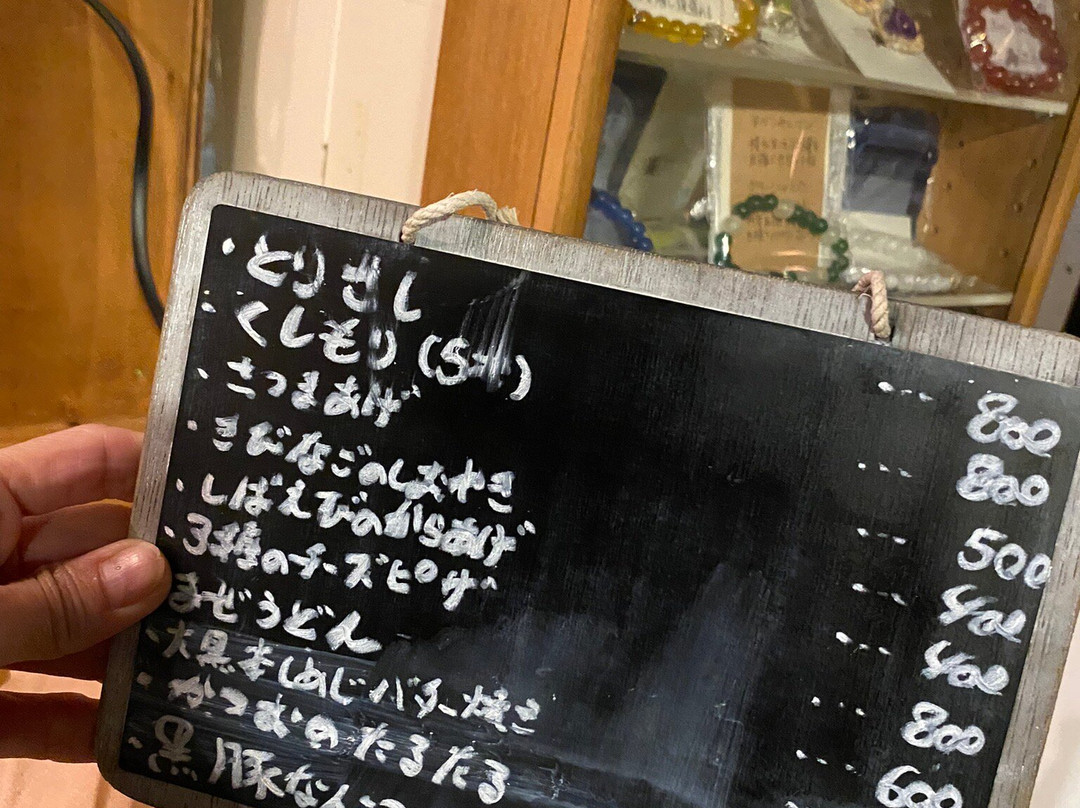 ・とりさし ・・・・ 800
・くしもり(5本) ・・・・ 800
・さつまあげ ・・・・ 500
・きびなごのしおやき ・・・・ 400
・しばえびのからあげ ・・・・ 400
・3種のチーズピザ ・・・・ 800
まぜうどん ・・・・ 600
・大黒本しめじバター焼き
・かつおのたるたる
・黒豚なんこつ